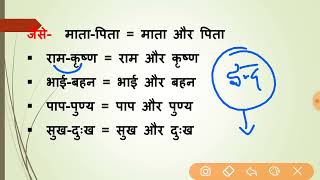 जैसे- माता-पिता = माता और पिता
▪ राम-कृष्ण = राम और कृष्ण
▪ भाई-बहन = भाई और बहन
▪ पाप-पुण्य = पाप और पुण्य
▪ सुख-दुःख = सुख और दुःख
द्वन्द